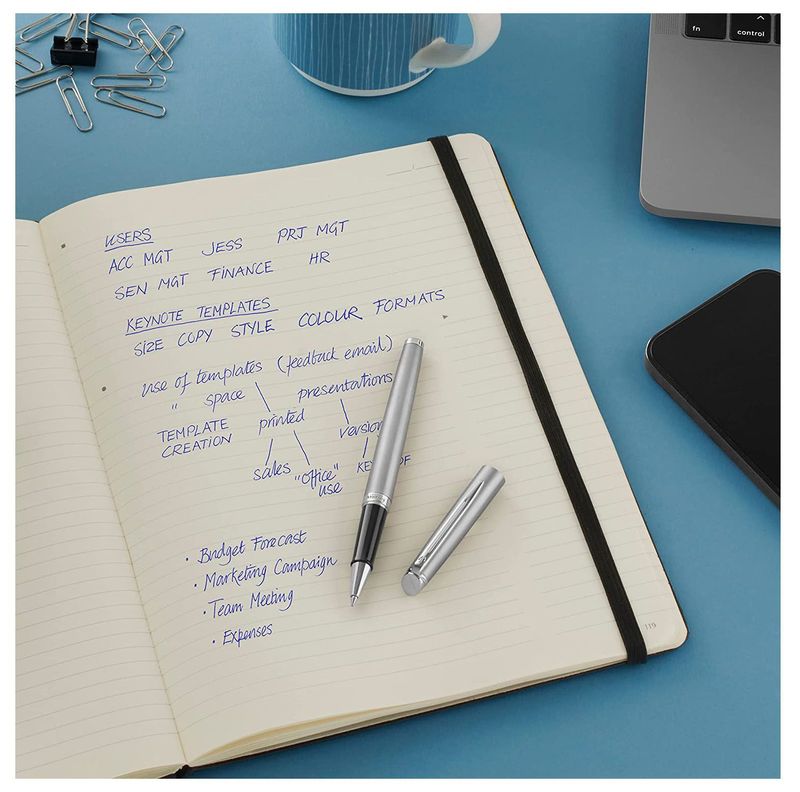 fn
control
USERS
ACC MGT JESS PRJ MGT
SEN MGT FINANCE HR
KEYNOTE TEMPLATES
SIZE COPY STYLE COLOUR FORMATS
use of templates (feedback email)
" space presentations
TEMPLATE CREATION printed version
sales "office" use
• Budget Forecast
• Marketing Campaign
• Team Meeting
• Expenses
119